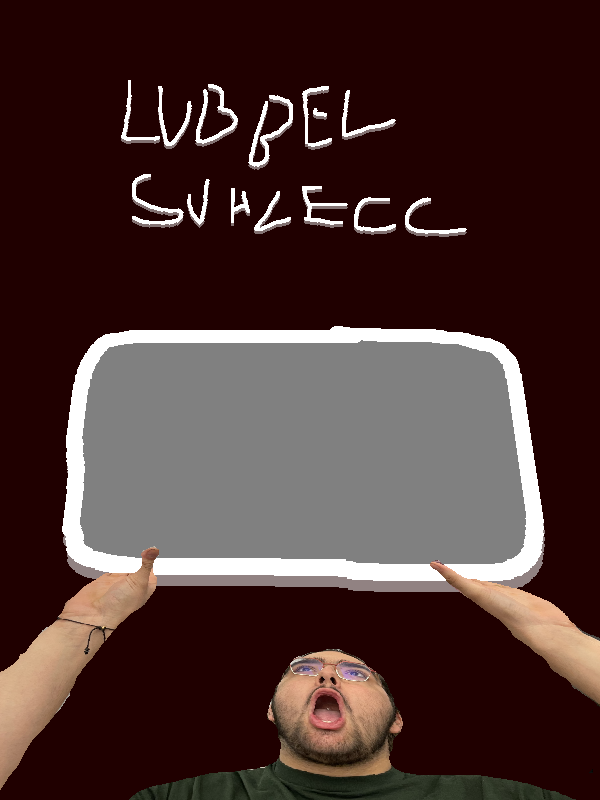 LUBBEL
SVHLECC